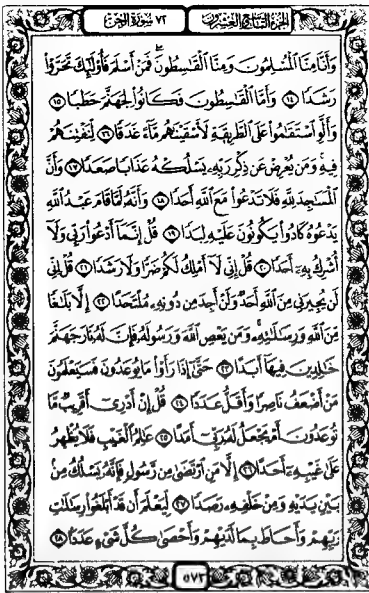 الجزء التاسع والعشرون ٧٢ سورة الجن
وَأَنَّا مِنَّا ٱلْمُسْلِمُونَ وَمِنَّا ٱلْقَٰسِطُونَ ۖ فَمَنْ أَسْلَمَ فَأُو۟لَٰٓئِكَ تَحَرَّوْا۟
رَشَدًا ١٤ وَأَمَّا ٱلْقَٰسِطُونَ فَكَانُوا۟ لِجَهَنَّمَ حَطَبًا ١٥
وَأَلَّوِ ٱسْتَقَٰمُوا۟ عَلَى ٱلطَّرِيقَةِ لَأَسْقَيْنَٰهُم مَّآءً غَدَقًا ١٦ لِّنَفْتِنَهُمْ
فِيهِ ۚ وَمَن يُعْرِضْ عَن ذِكْرِ رَبِّهِۦ يَسْلُكْهُ عَذَابًا صَعَدًا ١٧ وَأَنَّ
ٱلْمَسَٰجِدَ لِلَّهِ فَلَا تَدْعُوا۟ مَعَ ٱللَّهِ أَحَدًا ١٨ وَأَنَّهُۥ لَمَّا قَامَ عَبْدُ ٱللَّهِ
يَدْعُوهُ كَادُوا۟ يَكُونُونَ عَلَيْهِ لِبَدًا ١٩ قُلْ إِنَّمَآ أَدْعُوا۟ رَبِّى وَلَآ
أُشْرِكُ بِهِۦٓ أَحَدًا ٢٠ قُلْ إِنِّى لَآ أَمْلِكُ لَكُمْ ضَرًّا وَلَا رَشَدًا ٢١ قُلْ إِنِّى
لَن يُجِيرَنِى مِنَ ٱللَّهِ أَحَدٌ وَلَنْ أَجِدَ مِن دُونِهِۦ مُلْتَحَدًا ٢٢ إِلَّا بَلَٰغًا
مِّنَ ٱللَّهِ وَرِسَٰلَٰتِهِۦ ۚ وَمَن يَعْصِ ٱللَّهَ وَرَسُولَهُۥ فَإِنَّ لَهُۥ نَارَ جَهَنَّمَ
خَٰلِدِينَ فِيهَآ أَبَدًا ٢٣ حَتَّىٰٓ إِذَا رَأَوْا۟ مَا يُوعَدُونَ فَسَيَعْلَمُونَ
مَنْ أَضْعَفُ نَاصِرًا وَأَقَلُّ عَدَدًا ٢٤ قُلْ إِنْ أَدْرِىٓ أَقَرِيبٌ مَّا
تُوعَدُونَ أَمْ يَجْعَلُ لَهُۥ رَبِّىٓ أَمَدًا ٢٥ عَٰلِمُ ٱلْغَيْبِ فَلَا يُظْهِرُ
عَلَىٰ غَيْبِهِۦٓ أَحَدًا ٢٦ إِلَّا مَنِ ٱرْتَضَىٰ مِن رَّسُولٍ فَإِنَّهُۥ يَسْلُكُ مِنۢ
بَيْنِ يَدَيْهِ وَمِنْ خَلْفِهِۦ رَصَدًا ٢٧ لِّيَعْلَمَ أَن قَدْ أَبْلَغُوا۟ رِسَٰلَٰتِ
رَبِّهِمْ وَأَحَاطَ بِمَا لَدَيْهِمْ وَأَحْصَىٰ كُلَّ شَىْءٍ عَدَدًۢا ٢٨
٥٧٣